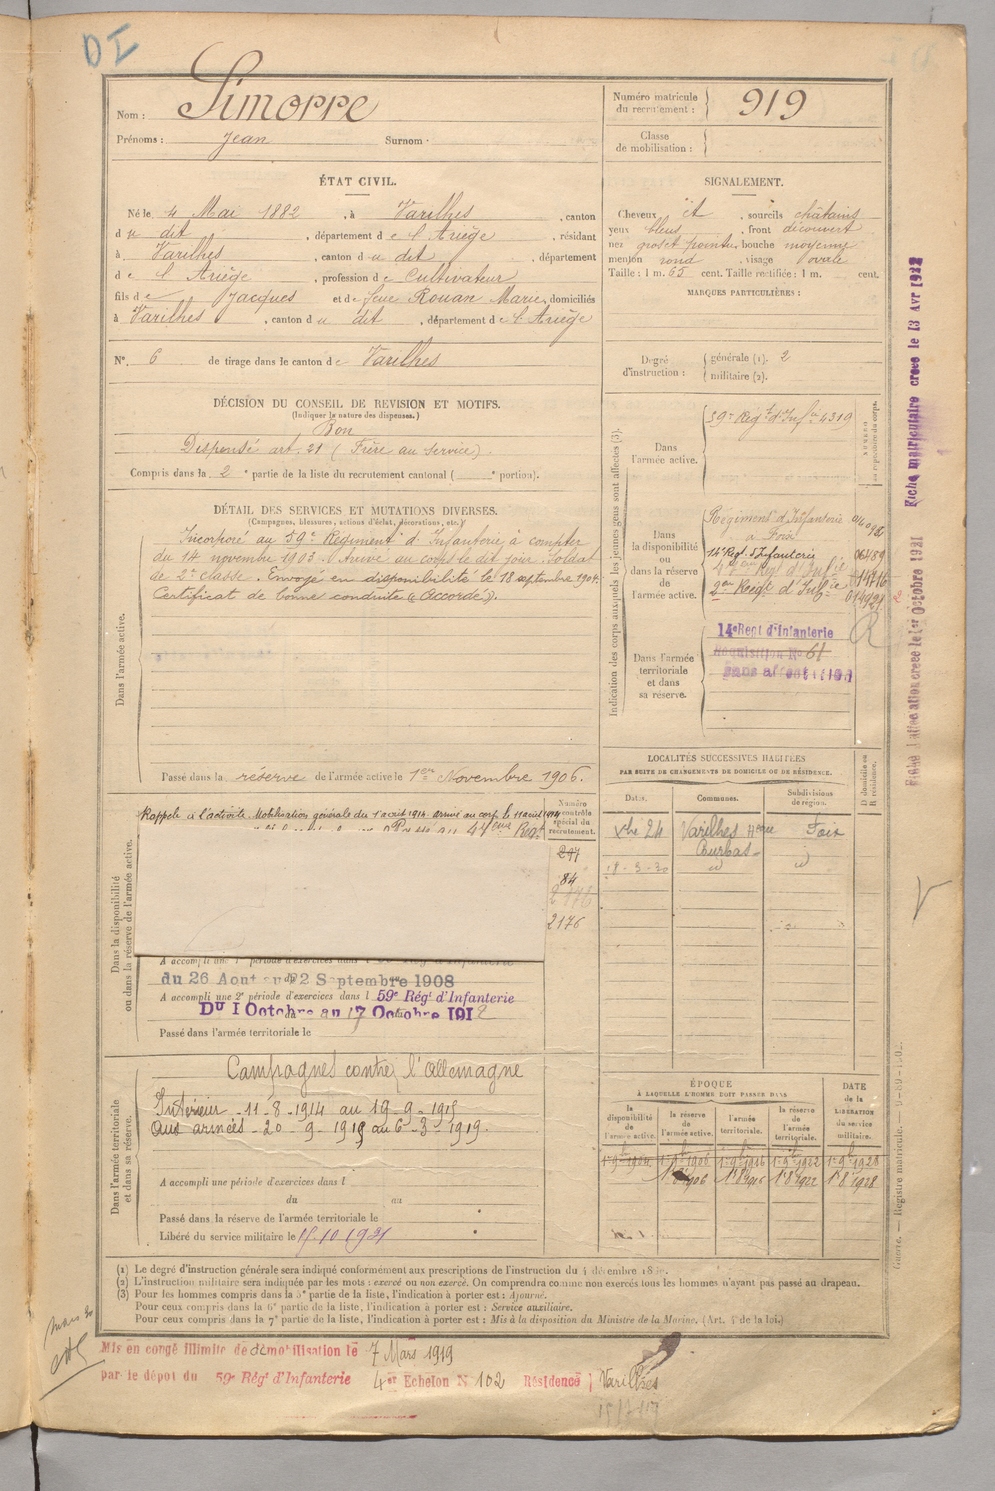 DI
Nom : Simorre
Prénoms : Jean Surnom
Numéro matricule du recrutement : 919
Classe de mobilisation :
ÉTAT CIVIL.
Né le 4 Mai 1882, à Varilhes, canton
du dit, département de l'Ariège, résidant
à Varilhes, canton du dit, département
de l'Ariège, profession de Cultivateur
fils de Jacques et de feue Rouan Marie, domiciliés
à Varilhes, canton du dit, département de l'Ariège
N° 6 de tirage dans le canton de Varilhes
SIGNALEMENT.
Cheveux et, sourcils châtains
yeux bleus, front découvert
nez gros et pointu, bouche moyenne
menton rond, visage ovale
Taille : 1 m. 65 cent. Taille rectifiée : 1 m. cent.
MARQUES PARTICULIÈRES :
Degré d'instruction : générale (1). 2
militaire (2).
DÉCISION DU CONSEIL DE REVISION ET MOTIFS.
(Indiquer la nature des dispenses.)
Bon
Dispensé art. 21 (Frère au service).
Compris dans la 2e partie de la liste du recrutement cantonal ( e portion).
DÉTAIL DES SERVICES ET MUTATIONS DIVERSES.
(Campagnes, blessures, actions d'éclat, décorations, etc.)
Dans l'armée active.
Incorporé au 59e Régiment d'Infanterie à compter
du 14 novembre 1903. Arrivé au corps le dit jour. Soldat
de 2e classe. Envoyé en disponibilité le 18 septembre 1904.
Certificat de bonne conduite "Accordé".
Passé dans la réserve de l'armée active le 1er Novembre 1906.
Indication des corps auxquels les jeunes gens sont affectés (3).
Dans l'armée active.
59e Régt d'Infie 4319
Dans la disponibilité ou dans la réserve de l'armée active.
Régiment d'Infanterie
à Foix
14e Régt d'Infanterie
2eme Régt d'Infie
Dans l'armée territoriale et dans sa réserve.
14e Regt d'Infanterie
Réquisition No 61
sans affectation
Dans la disponibilité ou dans la réserve de l'armée active.
Rappelé à l'activité. Mobilisation générale du 1er août 1914. Arrivé au corps le 11 août 1914
Numéro du contrôle spécial du recrutement.
84
2176
2176
A accompli une 1e période d'exercices dans l
du 26 Aout au 22 Septembre 1908
A accompli une 2e période d'exercices dans l 59e Régt d'Infanterie
Du 1 Octobre au 17 Octobre 191
Passé dans l'armée territoriale le
LOCALITÉS SUCCESSIVES HABITÉES
PAR SUITE DE CHANGEMENTS DE DOMICILE OU DE RÉSIDENCE.
Dates. Communes. Subdivisions de région. D domicile ou R résidence.
Xbre 24 Varilhes Foix
18-3-30 id id
Dans l'armée territoriale et dans sa réserve.
Campagnes contre l'allemagne
Intérieur - 11-8-1914 au 19-9-1915
Aux armées - 20-9-1915 au 6-3-1919.
A accompli une période d'exercices dans l
du au
Passé dans la réserve de l'armée territoriale le
Libéré du service militaire le
ÉPOQUE
À LAQUELLE L'HOMME DOIT PASSER DANS
la disponibilité de l'armée active. la réserve de l'armée active. l'armée territoriale. la réserve de l'armée territoriale.
DATE de la LIBÉRATION du service militaire.
(1) Le degré d'instruction générale sera indiqué conformément aux prescriptions de l'instruction du 4 décembre
(2) L'instruction militaire sera indiquée par les mots : exercé ou non exercé. On comprendra comme non exercés tous les hommes n'ayant pas passé au drapeau.
(3) Pour les hommes compris dans la 5e partie de la liste, l'indication à porter est : Ajourné.
Pour ceux compris dans la 6e partie de la liste, l'indication à porter est : Service auxiliaire.
Pour ceux compris dans la 7e partie de la liste, l'indication à porter est : Mis à la disposition du Ministre de la Marine. (Art. 4 de la loi.)
Mis en congé illimité de démobilisation le 7 Mars 1919
par le dépot du 59e Régt d'Infanterie 4e Echelon N 102 Résidence Varilhes
Fiche matriculaire créée le 13 Avr 1922
Fiche d'affectation créée le 1er Octobre 1921